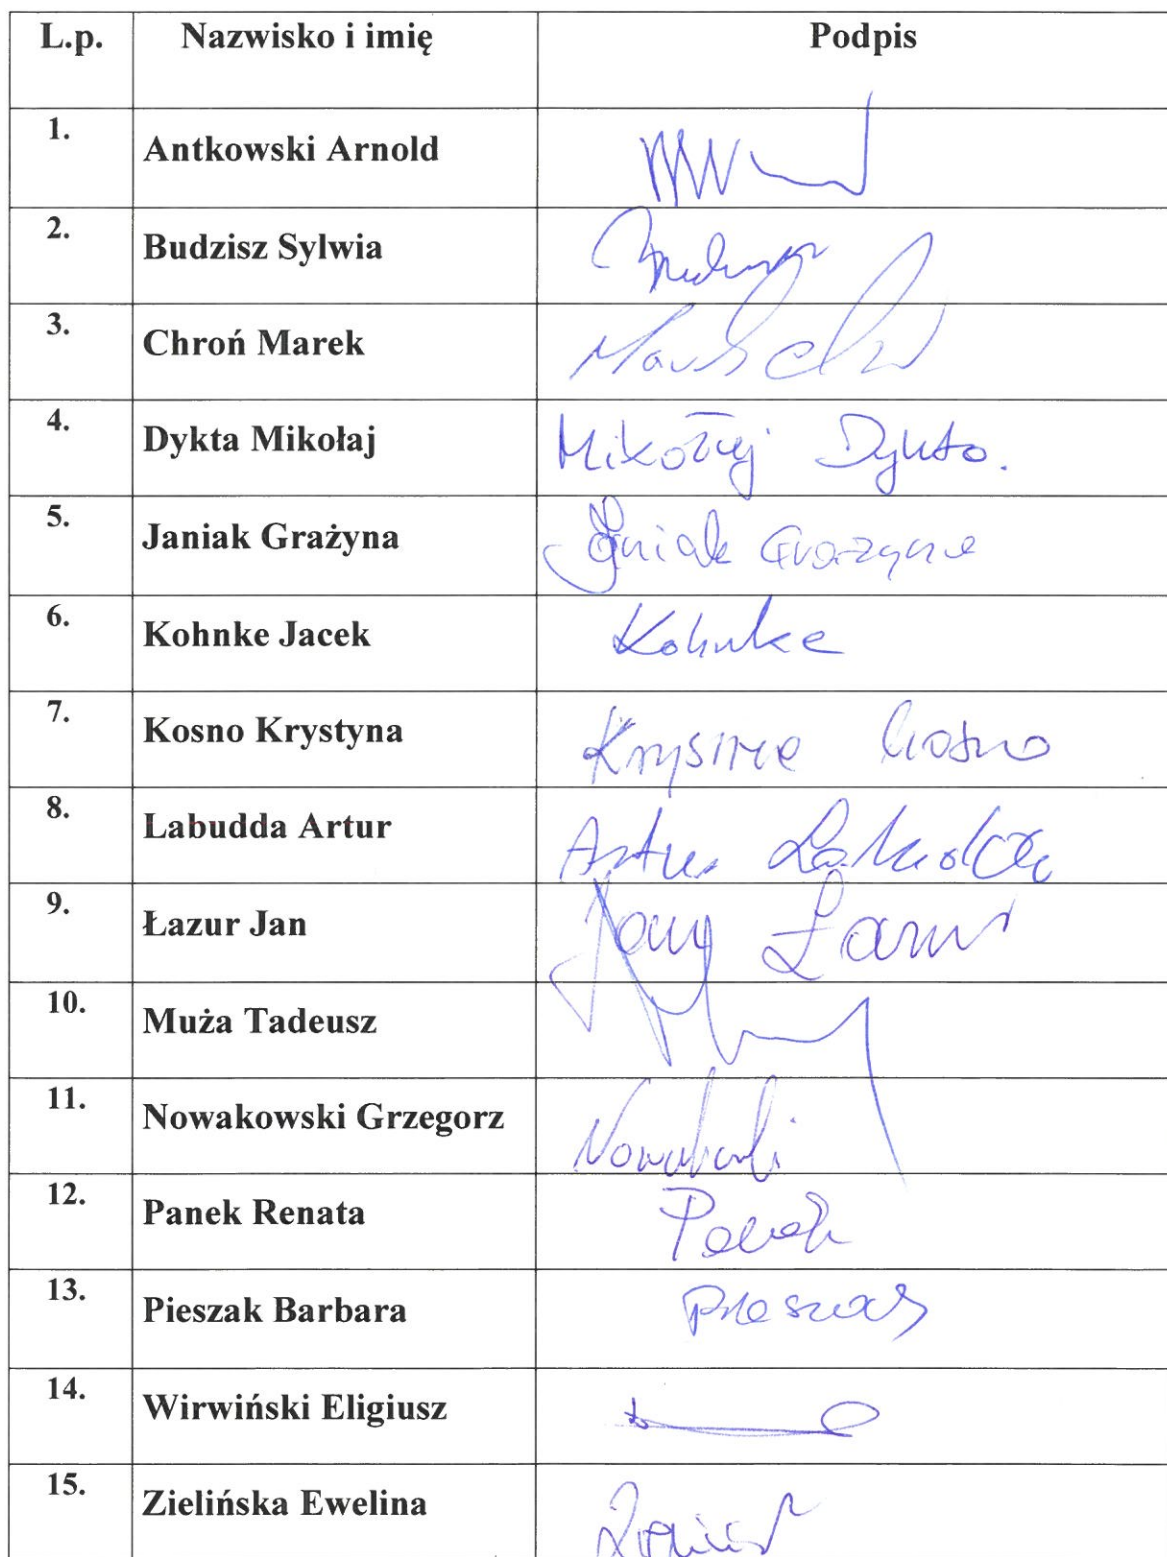 L.p. Nazwisko i imię Podpis
1. Antkowski Arnold
2. Budzisz Sylwia
3. Chroń Marek
4. Dykta Mikołaj Mikołaj Dykta.
5. Janiak Grażyna Janiak Grażyna
6. Kohnke Jacek Kohnke
7. Kosno Krystyna Krystyna Kosno
8. Labudda Artur Artur Labudda
9. Łazur Jan Jan Łazur
10. Muża Tadeusz
11. Nowakowski Grzegorz
12. Panek Renata Panek
13. Pieszak Barbara Pieszak
14. Wirwiński Eligiusz
15. Zielińska Ewelina